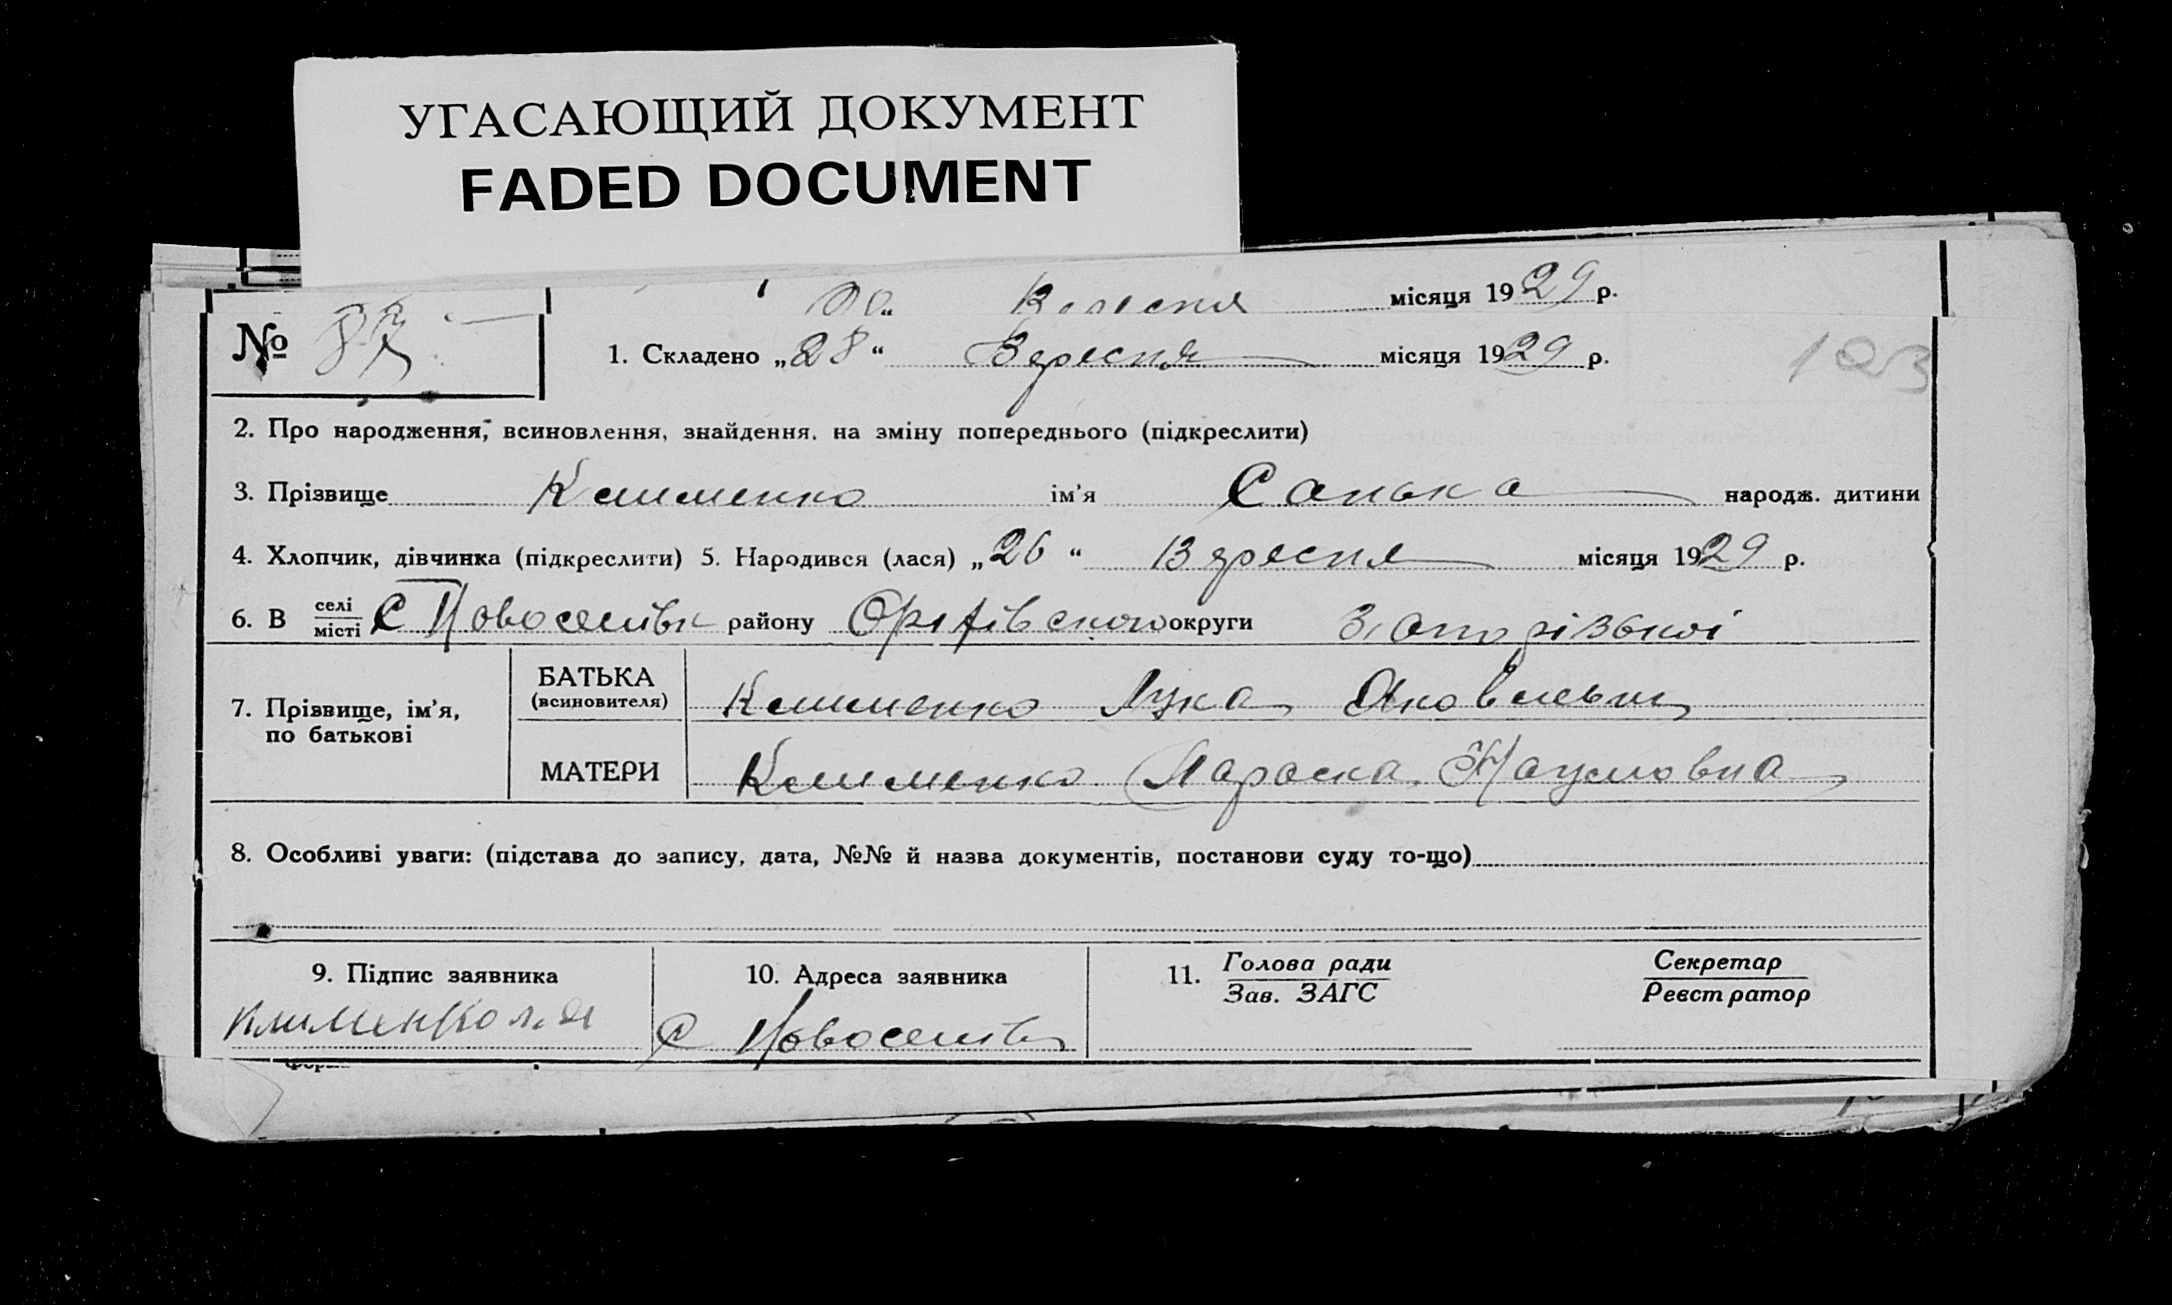 УГАСАЮЩИЙ ДОКУМЕНТ
FADED DOCUMENT
Вересня місяця 1929 р.
№ 87
1. Складено „28“ Вересня місяця 1929 р.
123
2. Про народження, всиновлення, знайдення, на зміну попереднього (підкреслити)
3. Прізвище Клименко ім'я Санька народж. дитини
4. Хлопчик, дівчинка (підкреслити) 5. Народився (лася) „26“ Вересня місяця 1929 р.
6. В селі/місті С Новоселівк району Оріхівського округи Запорізької
7. Прізвище, ім'я, по батькові
БАТЬКА (всиновителя) Клименко Лука Яковлевич
МАТЕРИ Клименко Параска Наумовна
8. Особливі уваги: (підстава до запису, дата, №№ й назва документів, постанови суду то-що)
9. Підпис заявника 10. Адреса заявника 11. Голова ради/Зав. ЗАГС Секретар/Реєстратор
Клименко Л. Я С Новоселівк